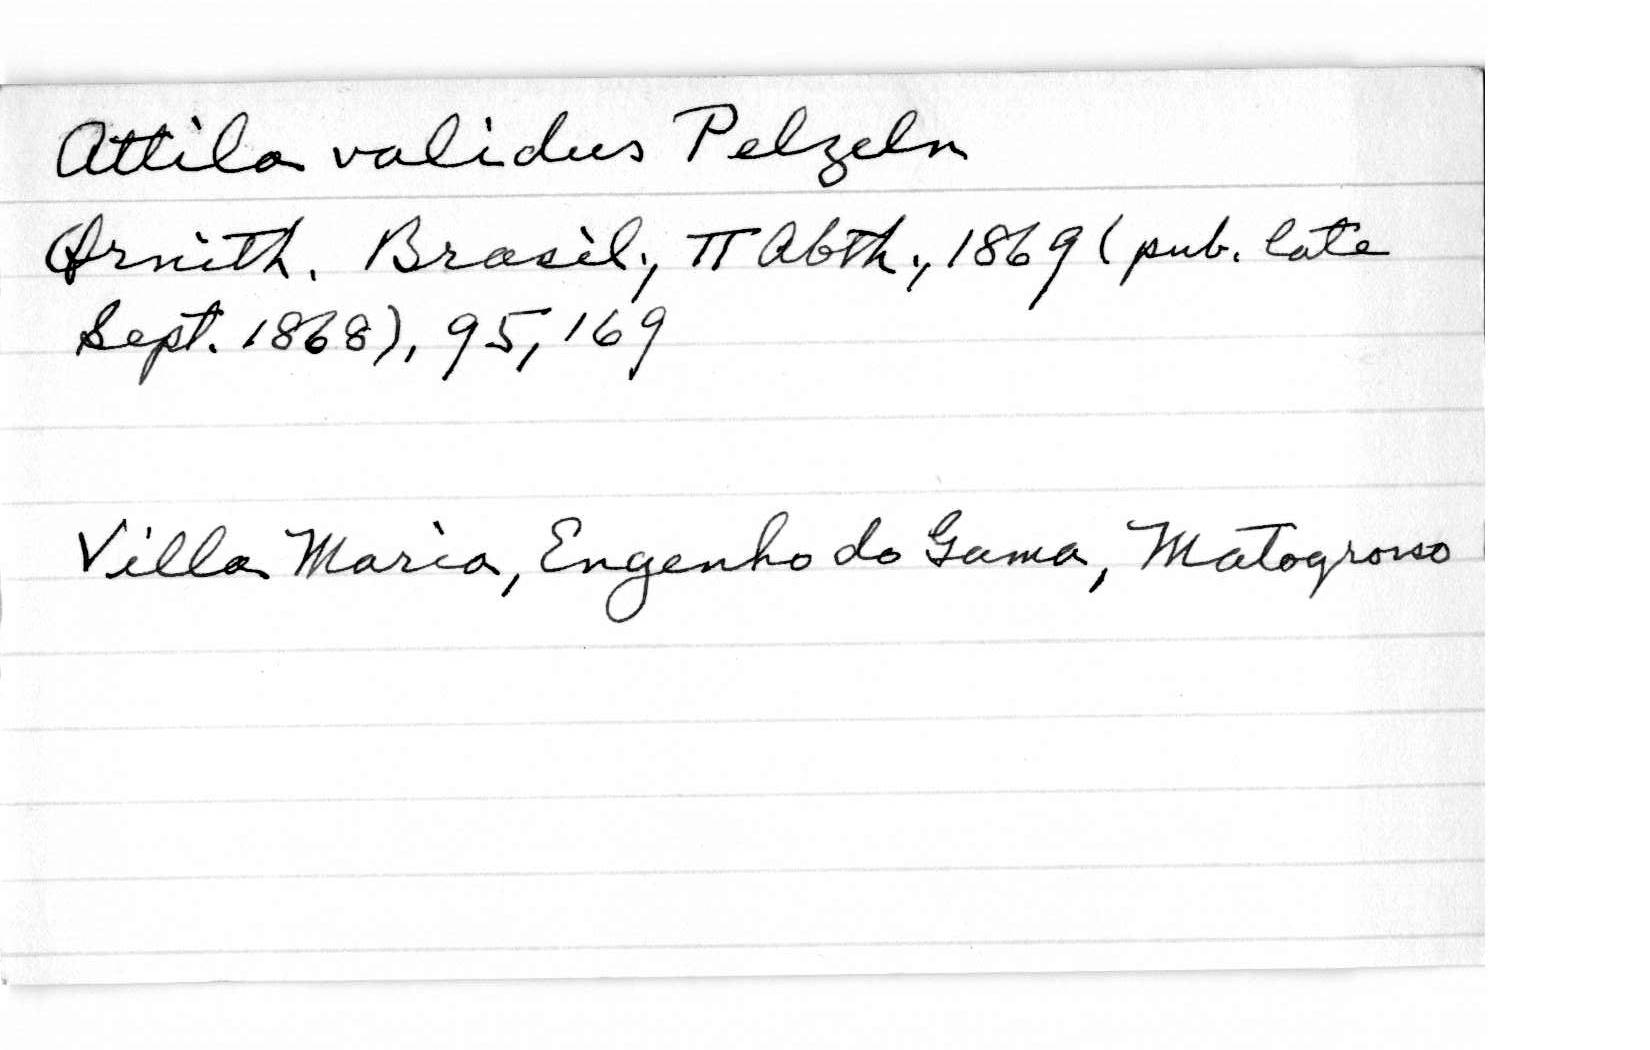 Attila validus Pelzeln
Ornith. Brasil., II Abth., 1869 (pub. late
Sept. 1868), 95, 169
Villa Maria, Engenho do Gama, Matogrosso